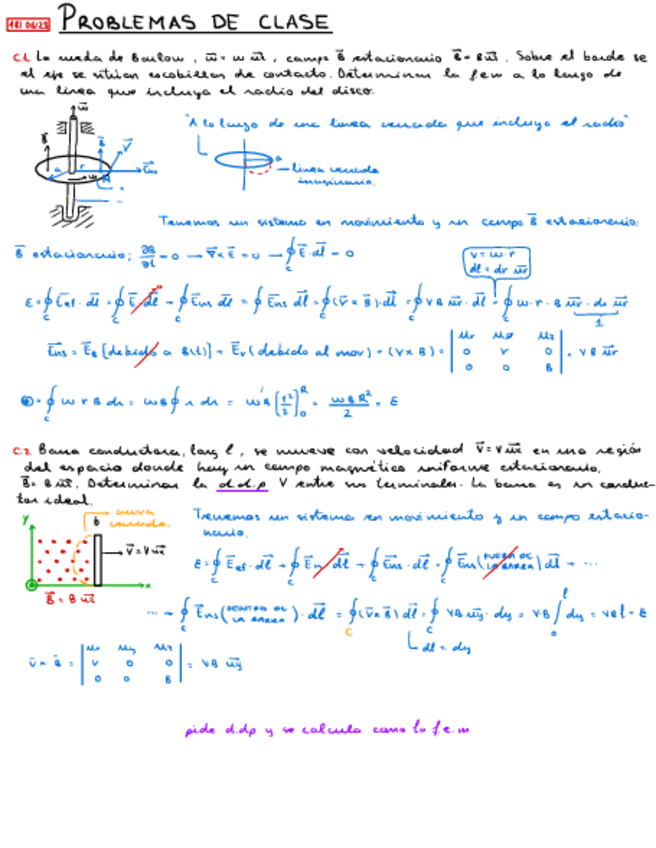 16/06/23 PROBLEMAS DE CLASE
C.1. La rueda de Barlow, w̅ = w u̅z, campo B̅ estacionario B̅ = B u̅z. Sobre el borde se
el eje se sitúan escobillas de contacto. Determinar la fem a lo largo de
una línea que incluya el radio del disco.
"A lo largo de una línea cerrada que incluya el radio"
línea cerrada
imaginaria.
Tenemos un sistema en movimiento y un campo B̅ estacionario.
B̅ estacionario; ∂B/∂t = 0 → ∇̅ x E̅ = 0 → ∮c E̅·dl̅ = 0
v = w·r
dl = dr u̅r
ε = ∮c E̅ef·dl̅ = ∮c E̅·dl̅ + ∮c E̅ns dl̅ = ∮ E̅ns dl̅ = ∮c (v̅ x B̅)·dl̅ = ∮c vB u̅r·dl̅ = ∮c w·r·B u̅r·dr u̅r
1
E̅ns = E̅B [debido a B(t)] + E̅v (debido al mov) = (v x B) = | ur uø uz | = vB u̅r
0 v 0
0 0 B
= ∮c w r B dr = wB ∮ r dr = wB [r²/2]₀ᴿ = wBR²/2 = ε
C.2 Barra conductora, long l, se mueve con velocidad v̅ = v u̅x en una región
del espacio donde hay un campo magnético uniforme estacionario,
B̅ = B u̅z. Determinar la d.d.p V entre sus terminales. La barra es un conduc-
tor ideal.
curva
cerrada.
y
v̅ = v u̅x
x
B̅ = B u̅z
Tenemos un sistema en movimiento y un campo estacio-
nario.
ε = ∮c E̅ef·dl̅ = ∮c E̅n dl̅ + ∮c E̅ns·dl̅ = ∮c E̅ns (FUERA DE LA BARRA) dl̅ + ...
... + ∮c E̅ns (DENTRO DE LA BARRA)·dl̅ = ∮c (v̅ x B̅) dl̅ = ∮c vB u̅y·dy = v·B ∫₀ˡ dy = vBl = ε
dl = dy
v̅ x B̅ = | ux uy uz | = vB u̅y
v 0 0
0 0 B
pide d.dp y se calcula como la f.e.m